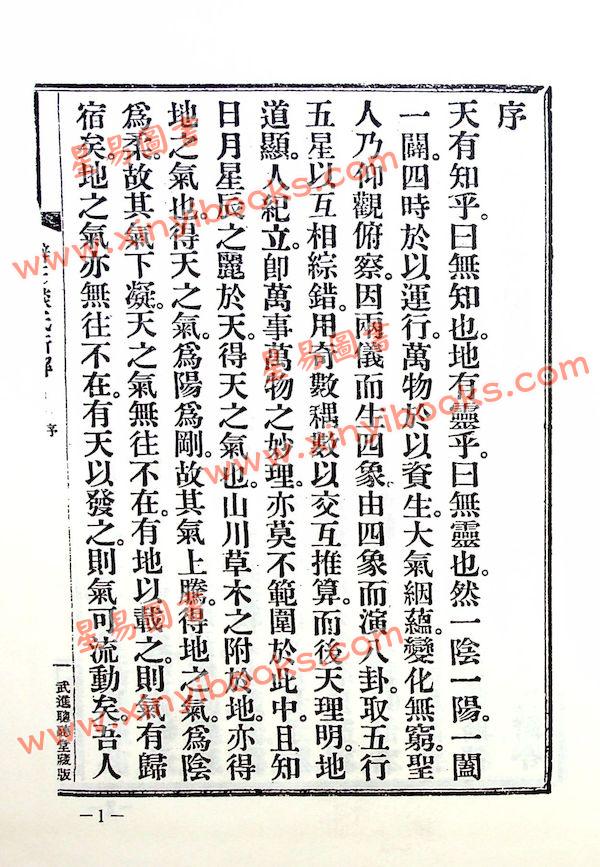 序
天有知乎。曰無知也。地有靈乎。曰無靈也。然一陰一陽。一闔
一闢。四時於以運行。萬物於以資生。大氣絪蘊。變化無窮。聖
人乃仰觀俯察。因兩儀而生四象。由四象而演八卦。取五行
五星以互相綜錯。用奇數耦數以交互推算。而後天理明。地
道顯。人紀立。卽萬事萬物之妙理。亦莫不範圍於此中。且知
日月星辰之麗於天。得天之氣也。山川草木之附於地。亦得
地之氣也。得天之氣。爲陽爲剛。故其氣上騰。得地之氣。爲陰
爲柔。故其氣下凝。天之氣無往不在。有地以載之。則氣有歸
宿矣。地之氣亦無往不在。有天以發之。則氣可流動矣。吾人
序
一
武進
堂藏版
—1—
星易圖書
www.xinyibooks.com
星易圖書
www.xinyibooks.com
星易圖書
www.xinyibooks.com